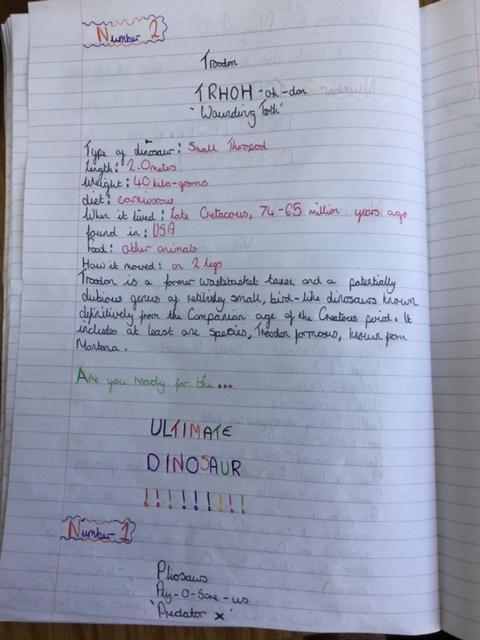 Number 2
Troodon
TRHOH-oh-don
'Wounding Tooth'
Type of dinosaur: Small Theropod
Length: 2.0metes
Weight: 40 kilo-grams
diet: carnivorous
When it lived: Late Cretacous, 74-65 million years ago
found in: USA
Food: other animals
How it moved: on 2 legs
Troodon is a former wastebasket taxon and a potentially
dubious genus of relitivley small, bird-like dinosaurs known
definitively from the Companian age of the Creatous period. It
includes at least one species, Troodon formosus, known from
Montana.
Are you ready for the...
ULTIMATE
DINOSAUR
!!!!!!!!!
Number 1
Pliosaurs
Ply-O-Sore-us
'Predator X'